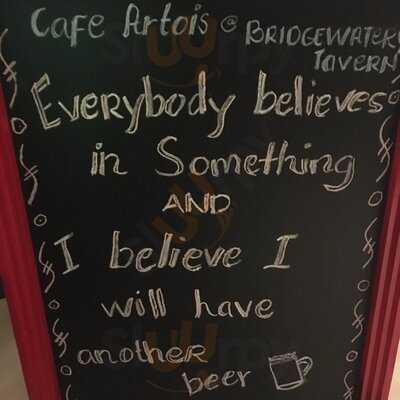 Cafe Artois @ BRIDGEWATER
TAVERN
Everybody believes
in Something
AND
I believe I
will have
another
beer